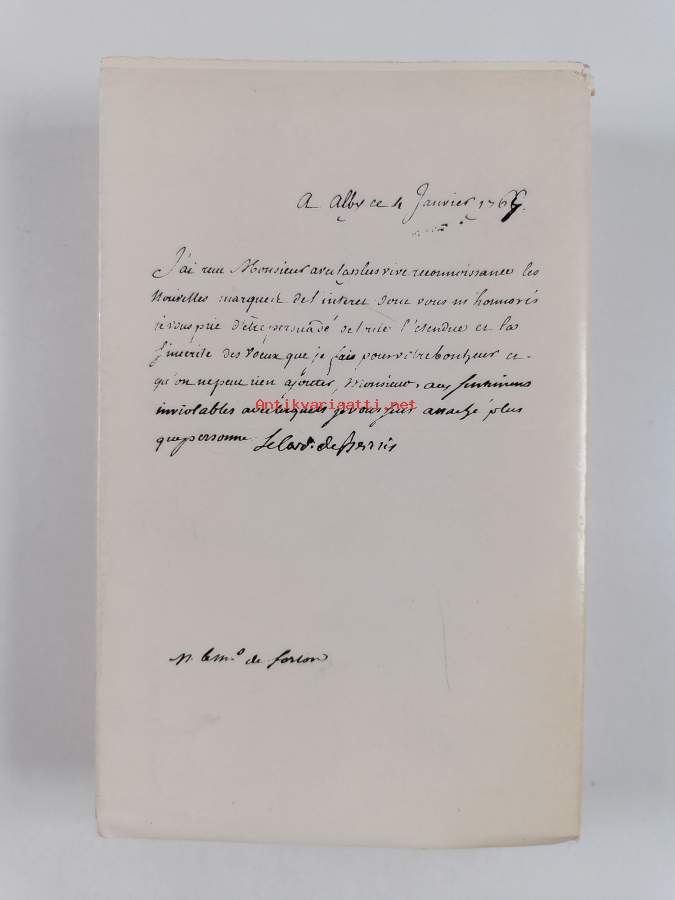 A Alby ce 4 Janvier 176
J'ai reçu Monsieur avec la plus vive reconnoissance les
Nouvelles marques de l'interet dont vous m'honnorés
je vous prie d'être persuadé de toute l'étendue et la
sincerité des voeux que je fais pour votre bonheur ce
qu'on ne peut rien ajouter, Monsieur, aux sentimens
Antikvariaatti.net
inviolables avec lesquels je vous suis attaché plus
que personne Le Card. de Bernis
M. le M.is de